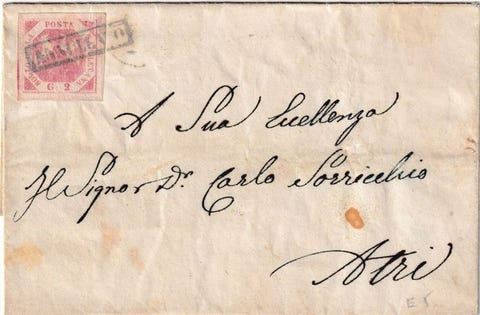 POSTA
G 2
ANNULLATO
A Sua Eccellenza
Il Signor Dr. Carlo Sorricchio
Atri
E 5